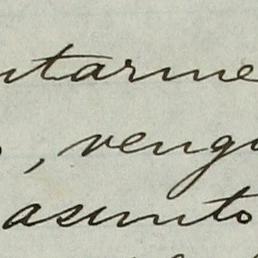 ntarme
, veng
asunto